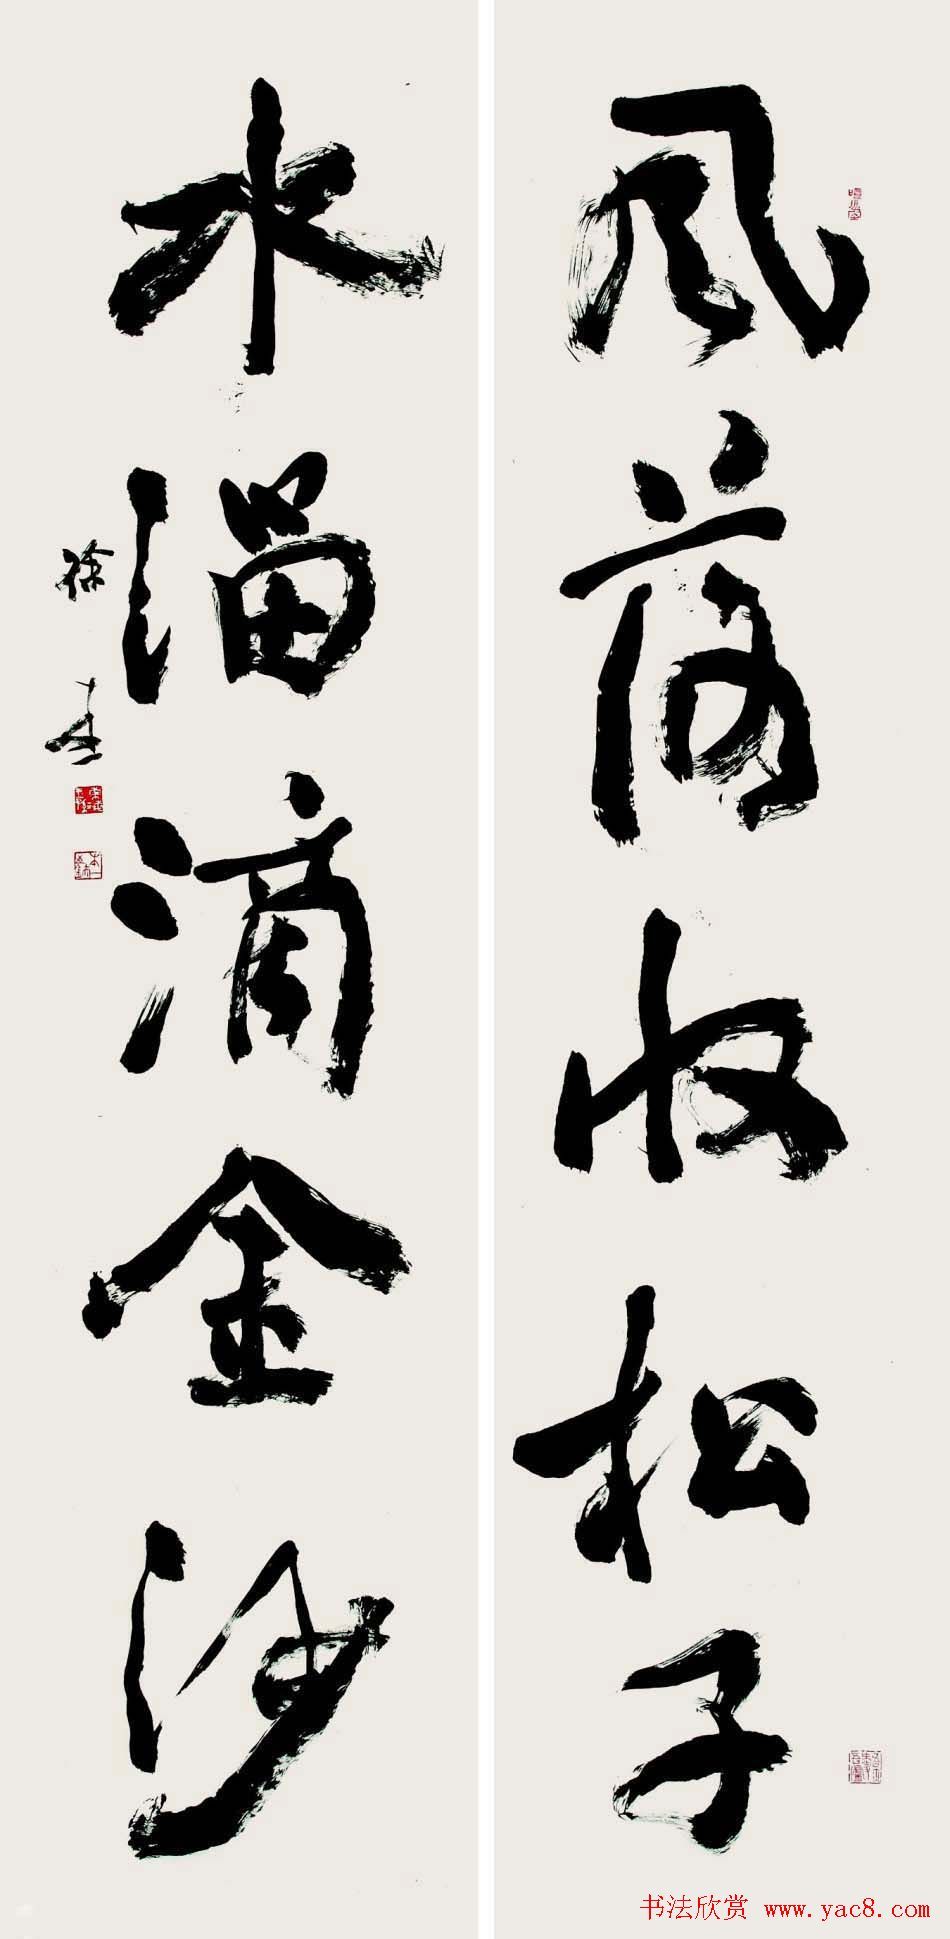 风落收松子
水溜滴金沙
徐本一
书法欣赏 www.yac8.com